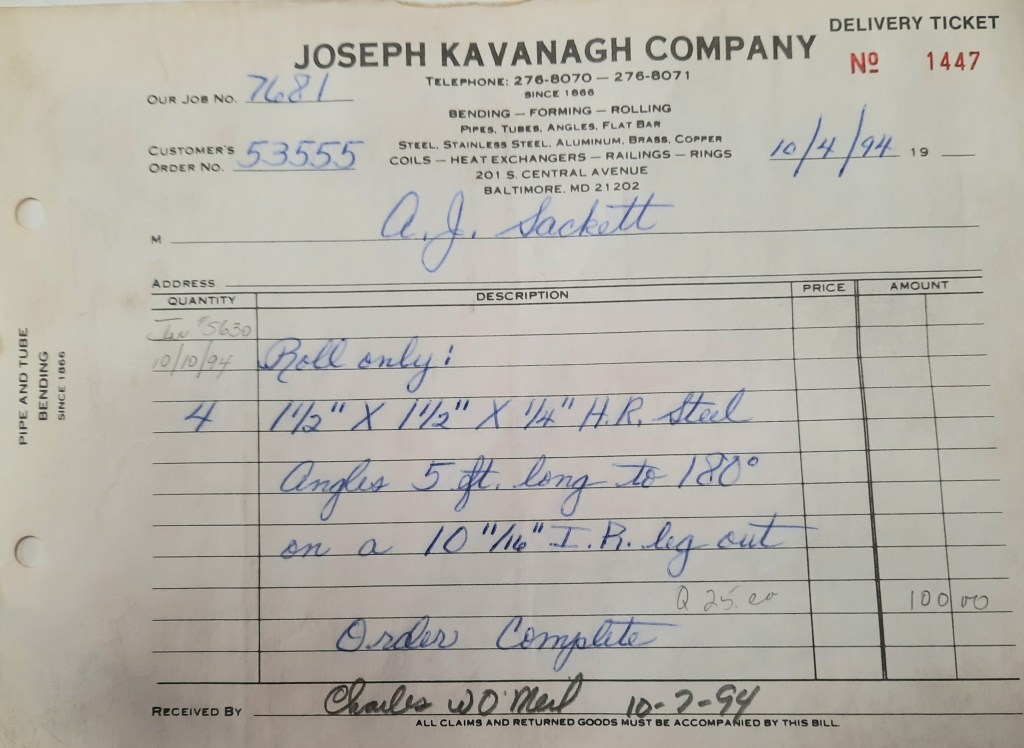 DELIVERY TICKET
JOSEPH KAVANAGH COMPANY
Nº 1447
TELEPHONE: 276-8070 — 276-8071
SINCE 1866
OUR JOB NO. 7681
BENDING — FORMING — ROLLING
PIPES, TUBES, ANGLES, FLAT BAR
STEEL, STAINLESS STEEL, ALUMINUM, BRASS, COPPER
COILS — HEAT EXCHANGERS — RAILINGS — RINGS
201 S. CENTRAL AVENUE
BALTIMORE, MD 21202
CUSTOMER'S
ORDER NO. 53555
10/4/94 19
M A. J. Sackett
ADDRESS
QUANTITY DESCRIPTION PRICE AMOUNT
Inv #5630
10/10/94 Roll only:
4 1 1/2" X 1 1/2" X 1/4" H.R. Steel
Angles 5 ft. long to 180°
on a 10 11/16" I.R. leg out
@ 25. ea 100 00
Order Complete
RECEIVED BY Charles W O'Neil 10-7-94
ALL CLAIMS AND RETURNED GOODS MUST BE ACCOMPANIED BY THIS BILL.
PIPE AND TUBE
BENDING
SINCE 1866